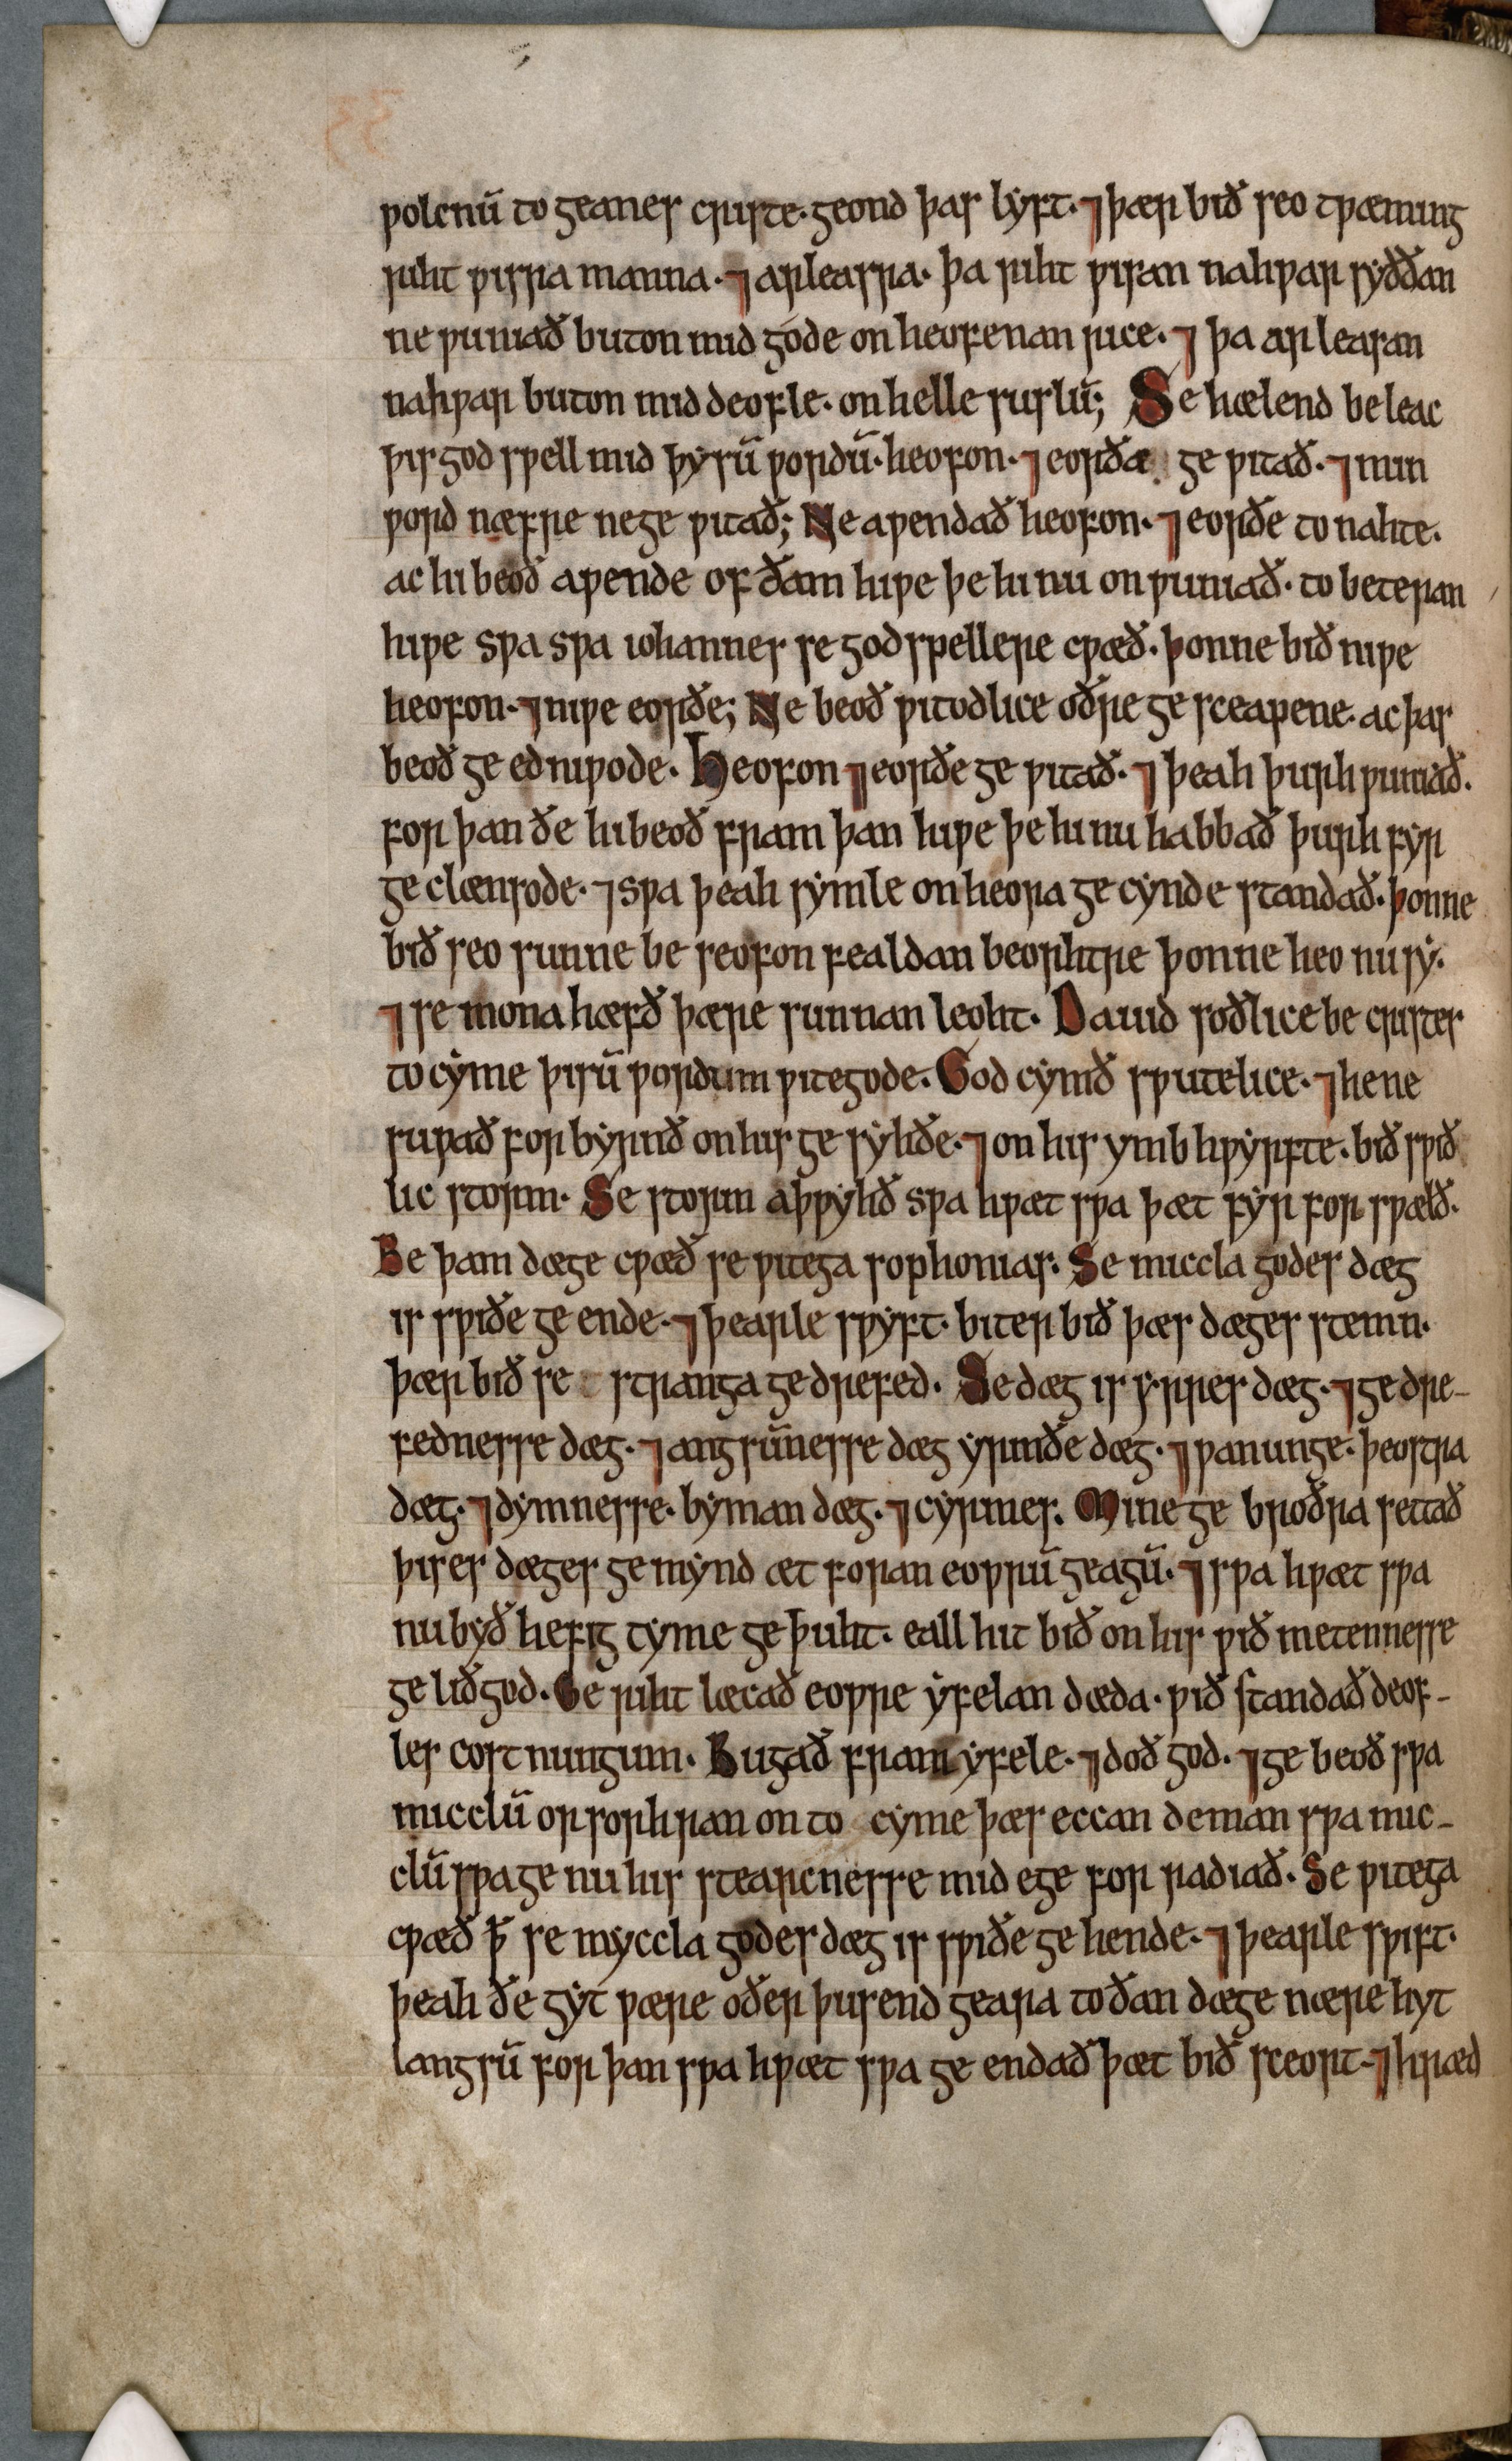 ƿolcnū to geanes criste· geond þas lyft· ⁊ þær bið seo tƿæming
riht ƿisra manna· ⁊ arleasra· þa riht ƿisan nahƿar syððan
ne ƿuniað buton mid góde on heofenan rice· ⁊ þa arleasan
nahƿar buton mid deofle· on helle suslū; Se hælend beleac
þis godspell mid þysū ƿordū· heofon· ⁊ eorðæ ge ƿitað· ⁊ min
ƿord næfre nege ƿitað; Ne aƿendað heofon· ⁊ eorðe to nahte·
ac hi beoð aƿende of ðam hiƿe þe hi nu on ƿuniað· to beteran
hiƿe sƿa sƿa iohannes se godspellere cƿæð· þonne bið niƿe
heofon· ⁊ niƿe eorðe; Ne beoð ƿitodlice oðre ge sceapene· ac þas
beoð ge edniƿode· Heofon ⁊ eorðe ge ƿitað· ⁊ þeah þurh ƿuniað·
for þan ðe hi beoð fram þan hiƿe þe hi nu habbað þurh fyr
ge clænsode· ⁊ sƿa þeah symle on heora ge cynde standað· þonne
bið seo sunne be seofon fealdan beorhtre þonne heo nu sy·
⁊ se mona hæfð þære sunnan leoht· Dauid soðlice be cristes
to cyme þisū ƿordum ƿitegode· God cymð sƿutelice· ⁊ he ne
suƿað for byrnð on his ge syhðe· ⁊ on his ymb hƿyrfte· bið sƿið
lic storm· Se storm aþƿyhð sƿa hƿæt sƿa þæt fyr for sƿælð·
Be þam dæge cƿæð se ƿitega sophonias· Se miccla godes dæg
is sƿiðe ge ende· ⁊ þearle sƿyft· biter bið þæs dæges stemn·
þær bið se stranga gedrefed· Se dæg is yrres dæg· ⁊ ge dre-
fednesse dæg· ⁊ angsūnesse dæg yrmðe dæg· ⁊ ƿanunge· þeostra
dæg· ⁊ dymnesse· byman dæg· ⁊ cyrmes. Mine ge broðra settað
þises dæges ge mynd æt foran eoƿrū geagū· ⁊ sƿa hƿæt sƿa
nu byð hefig tyme ge þuht· eall hit bið on his ƿið metennesse
ge liðgod· Ge riht læcað eoƿre yfelan dæda· ƿið standað deof-
les costnungum· Bugað fram yfele· ⁊ doð god· ⁊ ge beoð sƿa
micclū orsorhran on to cyme þæs eccan deman sƿa mic-
clū sƿa ge nu his stearcnesse mid ege for radiað· Se ƿitega
cƿæð þ̄ se myccla godes dæg is sƿiðe ge hende· ⁊ þearle sƿift·
þeah ðe gyt ƿære oðer þusend geara to ðan dæge nære hyt
langsū for þan sƿa hƿæt sƿa ge endað þæt bið sceort· ⁊ hræd